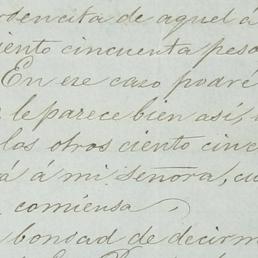 ordencita de aquel á
ciento cincuenta peso
En ese caso podré
le parece bien así,
los otros ciento cinc
á á mi señora, cu
comiensa
bondad de decirm